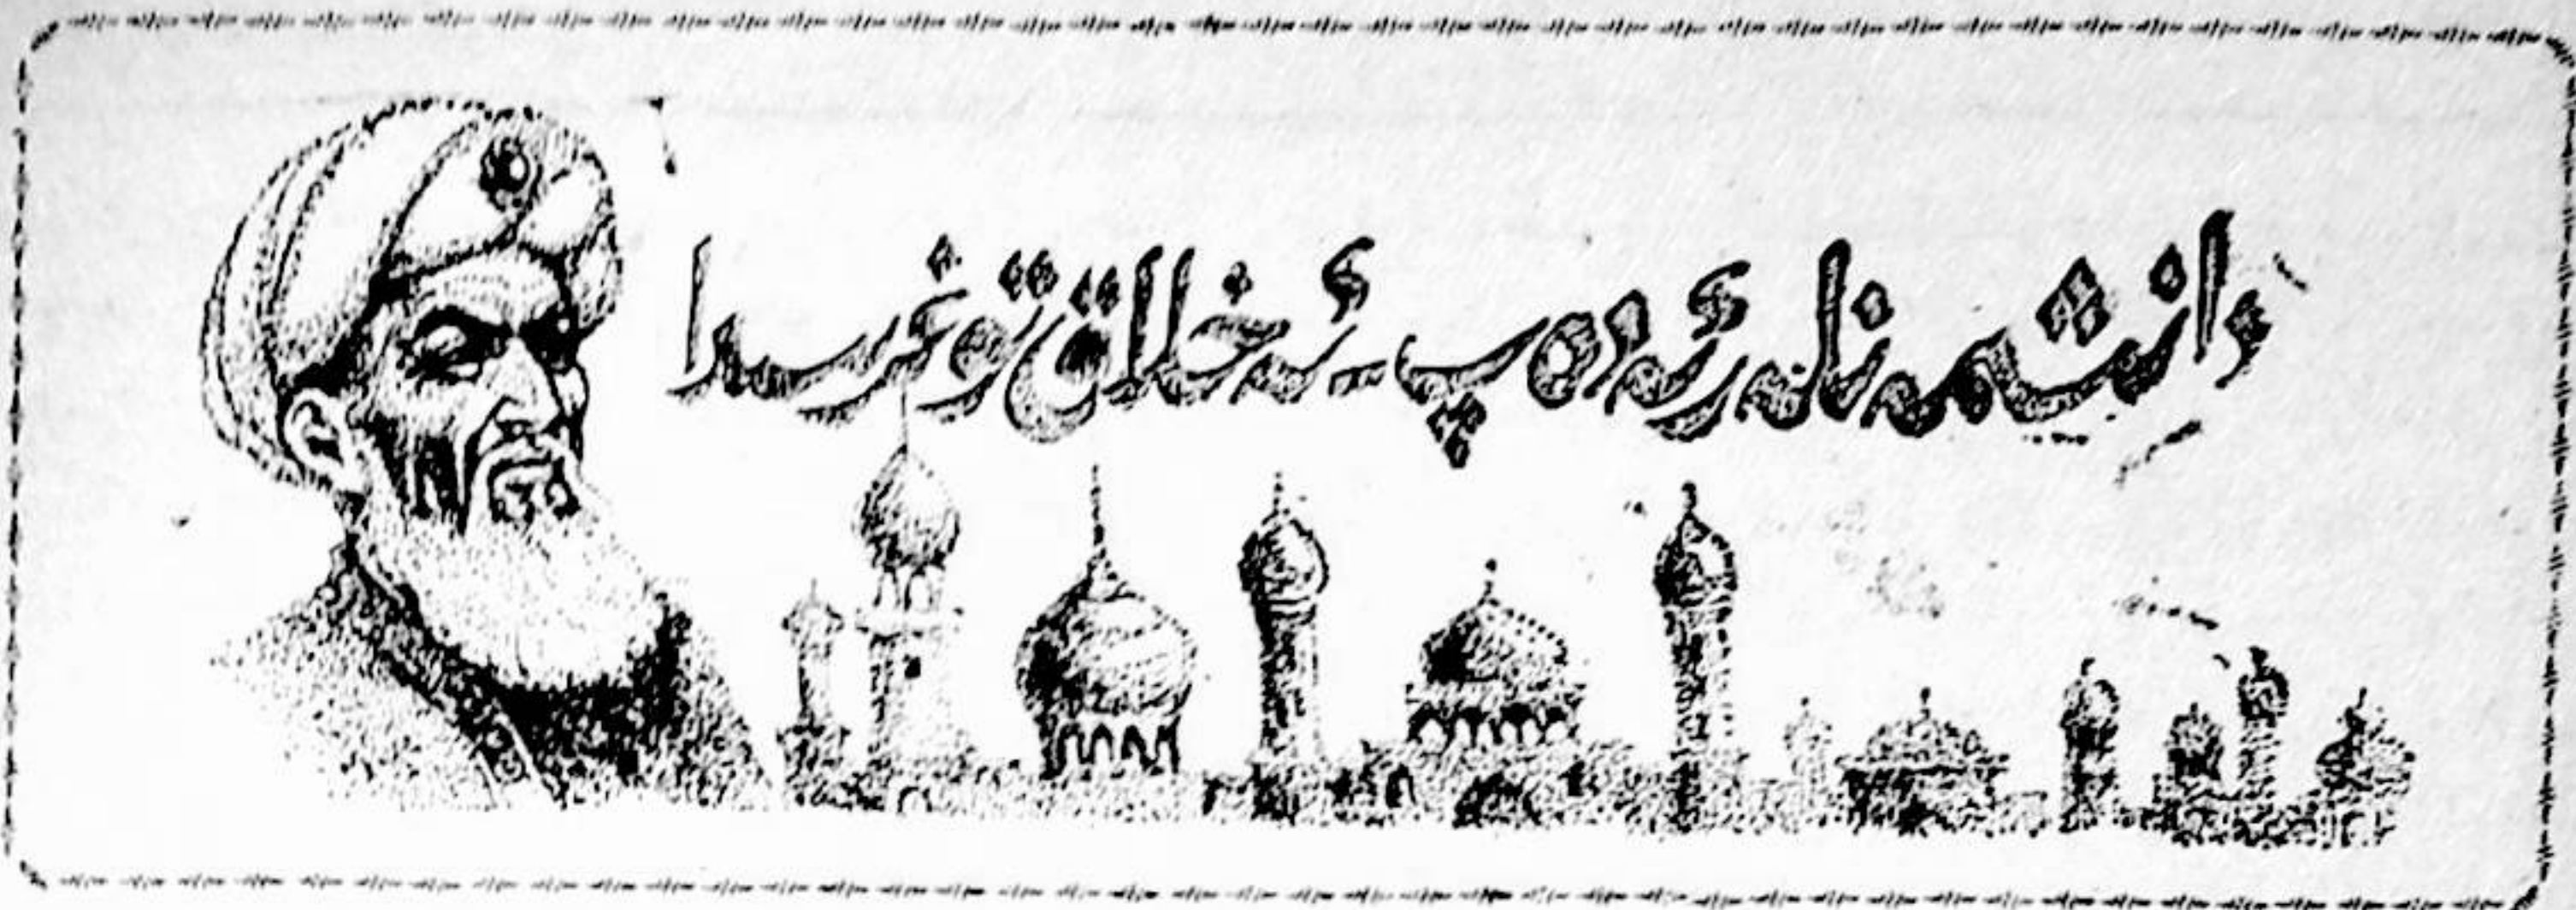 دانىشمەنلەر ئەدەپ - ئەخلاق توغرىسىدا